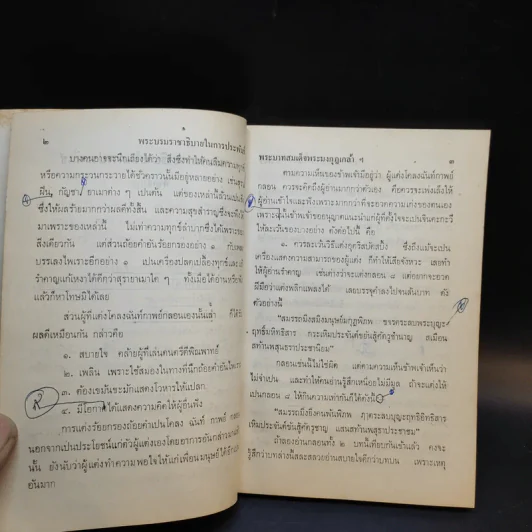 ๒ พระบรมราชาธิบายในการประพันธ์
บางคนอาจจะนึกเถียงได้ว่า สิ่งซึ่งทำให้คนลืมความทุกข์
หรือความกระวนกระวายได้ชั่วคราวนั้นมีอยู่หลายอย่าง เช่นสุรา
ฝิ่น, กัญชา, ยาเมาต่าง ๆ เปนต้น แต่ของเหล่านี้ล้วนเปน
ซึ่งให้ผลร้ายมากกว่าผลดีทั้งสิ้น และความสุขสำราญซึ่งจะพึง
มาเพราะของเหล่านี้ ไม่เท่าความทุกข์ลำบากซึ่งได้
สิ่งเดียวกัน แต่ส่วนถ้อยคำอันร้อยกรองอย่าง ๑ กับ
บรรเลงไพเราะอีกอย่าง ๑ เปนเครื่องปลดเปลื้องทุกข์และ
รำคาญแก่เหงาได้ดีกว่าสุรายาเมาใด ๆ ทั้งเมื่อได้อ่านหรือฟัง
แล้วก็หาโทษมิได้เลย
ส่วนผู้ที่แต่งโคลงฉันท์กาพย์กลอนเองนั้นเล่า ก็ได้รับ
ผลดีเหมือนกัน กล่าวคือ
๑. สบายใจ คล้ายผู้ที่เล่นดนตรีดีพิณพาทย์
๒. เพลิน เพราะใช้สมองในทางที่นึกถ้อยคำอันไพเราะ
๓. ต้องเขม้นขะมักแสดงโวหารให้แปลก
๔. มีโอกาสได้แสดงความคิดให้ผู้อื่นฟัง
การแต่งร้อยกรองถ้อยคำเปนโคลง ฉันท์ กาพย์ กลอน
นอกจากเปนประโยชน์แก่ตัวผู้แต่งเองโดยอาการอันกล่าวมาแล้ว
นั้น ยังนับว่าผู้แต่งทำความพอใจให้แก่เพื่อนมนุษย์ได้อีก
อันมาก
พระบาทสมเด็จพระมงกุฎเกล้า ฯ ๓
ตามความเห็นของข้าพเจ้ามีอยู่ว่า ผู้แต่งโคลงฉันท์กาพย์
กลอน ควรจะคิดถึงผู้อ่านมากกว่าตัวเอง คือควรจะเพ่งเล็งให้
ผู้อ่านเข้าใจและฟังเพราะมากกว่าที่จะอวดความเก่งของตนเอง
เพราะฉะนั้นข้าพเจ้าขออนุญาตแนะนำแก่ผู้ที่ตั้งใจจะเปนจินตะกะวี
ให้ละเว้นของบางอย่าง ดังต่อไปนี้ คือ
๑. ควรละเว้นวิธีแต่งกูตรีสบัดสบิ้ง ซึ่งถึงแม้จะเปน
เครื่องแสดงความสามารถของผู้แต่ง ก็ทำให้เสียจังหวะ เลยทำ
ให้ผู้อ่านรำคาญ เช่นต่างว่าจะแต่งกลอน ๘ แต่อยากจะอวด
ฝีมือว่าแต่งพลิกแพลงได้ เลยบรรจุคำลงไปจนล้นบาท ดัง
ตัวอย่างนี้
กลอนเช่นนี้ไม่ใช่ผิด แต่ตามความเห็นข้าพเจ้าเห็นว่า
ไม่จำเปน และทำให้คนอ่านรู้สึกเหนื่อยไม่มีมูล ถ้าจะแต่งให้
เปนกลอน ๘ ให้กินความเท่ากันก็ได้ดังนี้
ถ้าลองอ่านกลอนทั้ง ๒ บทนี้เทียบกันเข้าแล้ว คงจะ
รู้สึกว่าบทล่างนี้สละสลวยอ่านสบายใจดีกว่าบทบน เพราะเหตุ